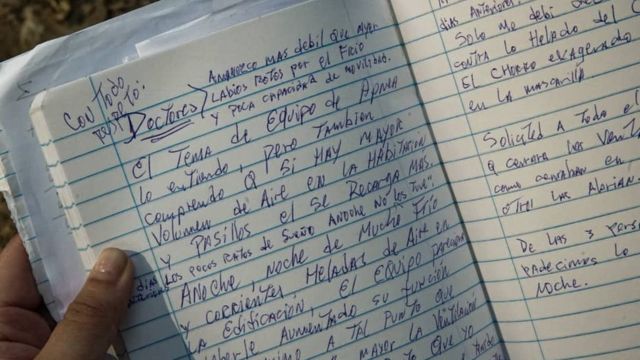 Con todo
respeto:
Doctores
Amanezco mas debil que ayer
Labios rotos por el frio
y poca capacidad de movilidad.
El tema de equipo de Apnea
lo entiendo, pero tambien
comprendo q si hay mayor
volumen de aire en la habitacion
y pasillos el se recarga mas.
los pocos ratos de sueño anoche no los tuve"
Anoche, noche de mucho frio
y corrientes heladas de aire en
la edificación, el equipo
aumentado su funcion
a tal punto que
mayor la ventilacion
que yo
dias anteriores.
Solo me debi
contra lo helado del
el chorro exagerado
en la mascarilla.
Solicited a todo el
q cerrara las
como cerraban en
otro las abrian.
De las 3
lo
noche.